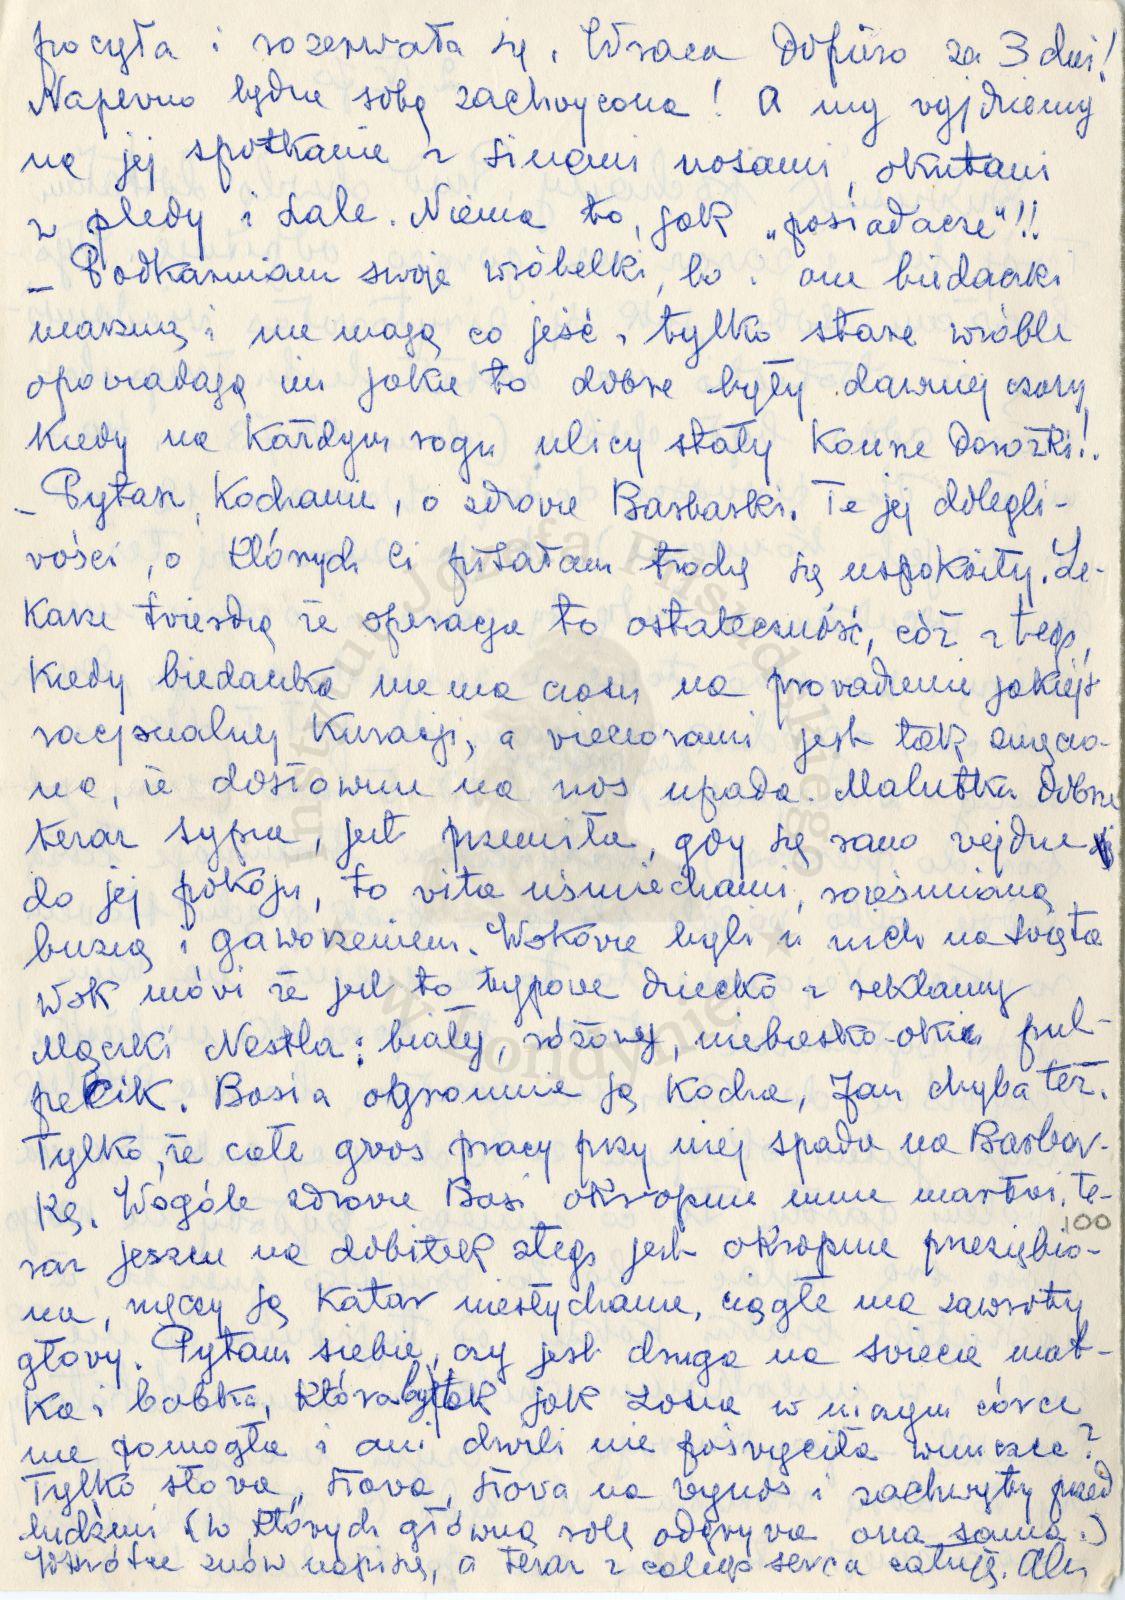 poczęła i rozerwała się. Wraca dopiero za 3 dni!
Napewno będzie sobą zachwycona! A my wyjdziemy
na jej spotkanie z sinemi nosami, okutani
w pledy i szale. Niema to, jak „posiadacze"!!
– Podkarmiam swoje wróbelki, bo i one biedaczki
marzną i nie mają co jeść, tylko stare wróble
opowiadają im jakie to dobre były dawniej czasy,
kiedy na każdym rogu ulicy stały konne dorożki!.
– Pytasz, Kochanie, o zdrowie Barbarki. Te jej dolegli-
wości, o których Ci pisałam trochę się uspokoiły. Le-
karze twierdzą że operacja to ostateczność, cóż z tego,
kiedy biedactwo nie ma czasu na prowadzenie jakiejś
racjonalnej kuracji, a wieczorami jest tak zmęczo-
na, że dosłownie na nos upada. Malutka dobrze
teraz sypia, jest przemiła, gdy się rano wejdzie
do jej pokoju, to wita uśmiechami, roześmianą
buzią i gaworzeniem. Wokowie byli u nich na święta
Wok mówi że jest to typowe dziecko z reklamy
Mączki Nestla: biały, różowy, niebiesko-oki pul-
pecik. Basia ogromnie ją kocha, Jan chyba też.
Tylko, że całe gros pracy przy niej spada na Barbar-
kę. Wogóle zdrowie Basi okropnie mnie martwi, te-
100
raz jeszcze na dobitek złego jest okropnie przeziębio-
na, męczy ją katar niesłychanie, ciągle ma zawroty
głowy. Pytam siebie, czy jest druga na świecie mat-
ka i babka, która by tak jak Zosia w niczym córce
nie pomogła i ani chwili nie poświęciła wnuczce?
Tylko słowa, słowa, słowa na wynos i zachwyty przed
ludźmi (w których główną rolę odgrywa ona sama.)
Wkrótce znów napiszę, a teraz z całego serca całuję. Ala
Instytut Józefa Piłsudskiego
w Londynie